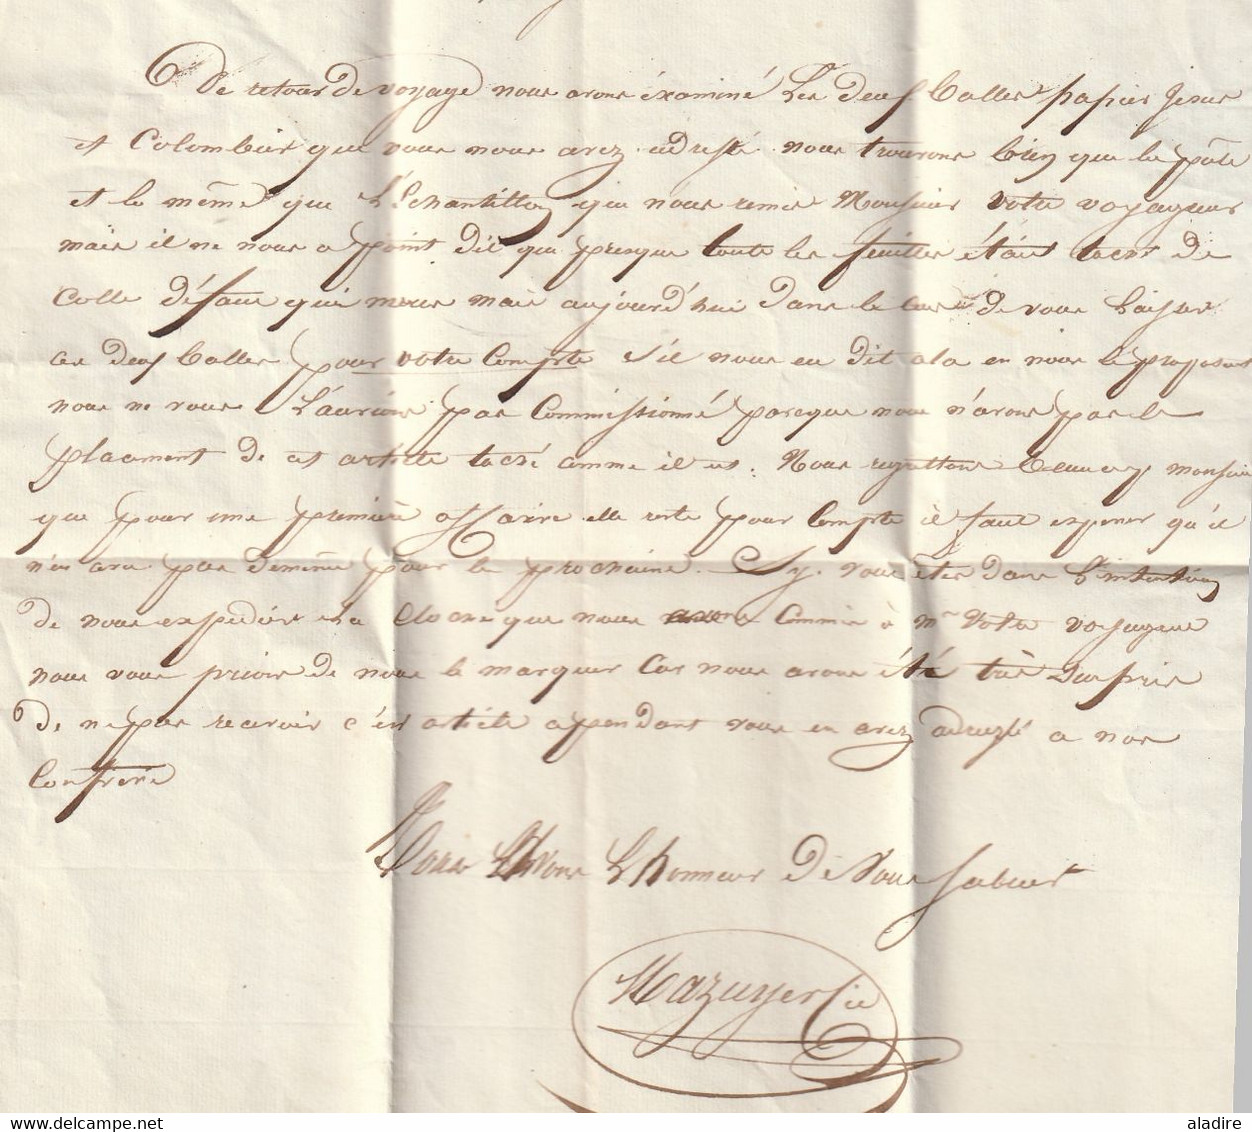 De retour De voyage nous avons éxaminé Les deux Balles papier Jesus
et Colombier que vous nous avez adressé nous trouvons bien que la pâte
et la même que L'Echantillon que nous remis Monsieur Votre voyageur
mais il ne nous a point dit que presque toute les feuilles étais tachés de
Colle défaut qui nous mais aujourd'hui dans le cas de vous Laisser
ces deux Balles pour votre Compte s'il nous eu dit cela en nous le proposant
nous ne vous L'aurions pas Commissionné parceque nous n'avons pas le
placement de cet article taché comme il est. Nous regrettons Beaucoup monsieur
que pour une première affaire elle reste pour Compte il faut esperer qu'il
n'en sera pas de même pour la prochaine. Sy vous êtes dans L'intention
de nous expédier La Cloche que nous avons Commis à Mr Votre voyageur
nous vous prions de nous le marquer Car nous avons été très surpris
De ne pas recevoir c'est article cependant vous en avez adressé a nos
Confrere
Nous Avons L'honneur De Vous saluer
Mazuyer Cie
delcampe.net
aladire